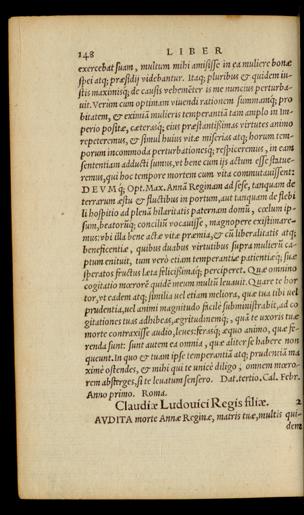 148 LIBER
exercebat suam, multum mihi amisisse in ea muliere bonæ
spei atq; præsidij videbantur. Itaq; pluribus & quidem iu-
stis maximisq; de causis vehemẽter is me nuncius perturba-
uit. Verùm cum optimam viuendi rationem summamq; pro
bitatem, & eximiã mulieris temperantiã tam amplo in Im-
perio positæ, cæterasq; eius præstantißimas virtutes animo
repeteremus, & simul huius vitæ miserias atq; horum tem-
porum incommoda perturbationesq; respiceremus, in eam
sententiam adducti sumus, vt bene cum ijs actum esse statue-
remus, qui hoc tempore mortem cum vita commutauissent:
DEVMq́; Opt. Max. Annã Reginam ad sese, tanquam de
terrarum æstu & fluctibus in portum, aut tanquam de flebi
li hospitio ad plenã hilaritatis paternam domũ, cœlum ip-
sum, beatorũq; conciliũ vocauisse, magnopere existimare-
mus: vbi illa bene actæ vitæ præmia, & cũ liberalitatis atq;
beneficentiæ, quibus duabus virtutibus supra mulierũ ca-
ptum enituit, tum verò etiam temperantiæ patientiæq; suæ
speratos fructus læta felicißimaq; perciperet. Quæ omnino
cogitatio mœrorẽ quidẽ meum multũ leuauit. Quare te hor
tor, vt eadem atq; similia vel etiam meliora, quæ tua tibi vel
prudentia, vel animi magnitudo facilè subministrabit, ad co
gitationes tuas adhibeas, ægritudinemq; , quã te vxoris tuæ
morte contraxisse audio, leues: ferasq; æquo animo, quæ fe-
renda sunt: sunt autem ea omnia, quæ aliter se habere non
queunt. In quo & tuam ipse temperantiã atq; prudentiã ma
ximè ostendes, & mihi qui te vnicè diligo, omnem mœro-
rem absterges, si te leuatum sensero. Dat. tertio. Cal. Febr.
Anno primo. Roma.
Claudiæ Ludouici Regis filiæ. 2
AVDITA morte Annæ Reginæ, matris tuæ, multis qui-
dem